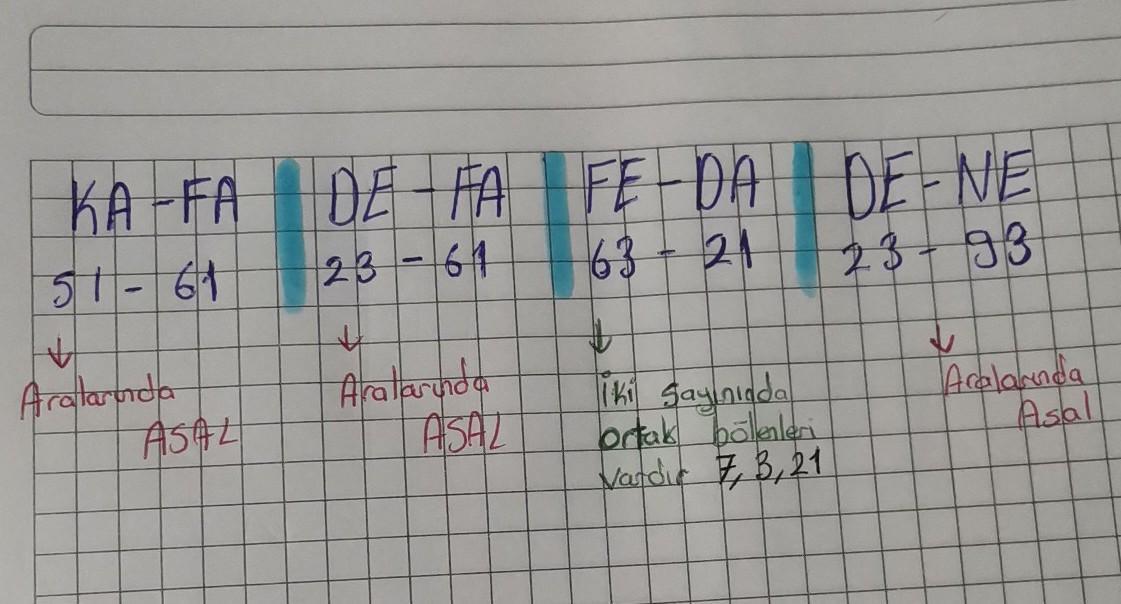 KA-FA DE-FA FE-DA DE-NE
51-61 23-61 63-21 23-93
Aralarında
ASAL
Aralarında
ASAL
İki sayınında
ortak bölenleri
vardır 7,3,21
Aralarında
Asal